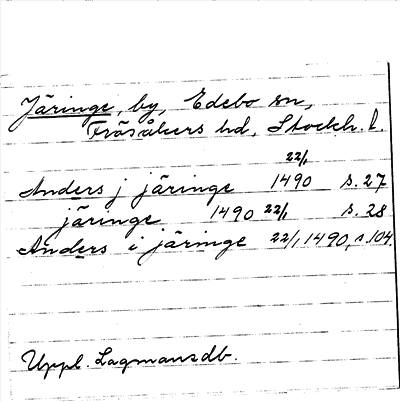 Järinge, by, Edebo sn,
Frösåkers hd, Stockh. l.
22/1
Anders j järinge 1490 s. 27
järinge 1490 22/1 s. 28
Anders i järinge 22/1 1490, s. 104
Uppl. Lagmansdb.